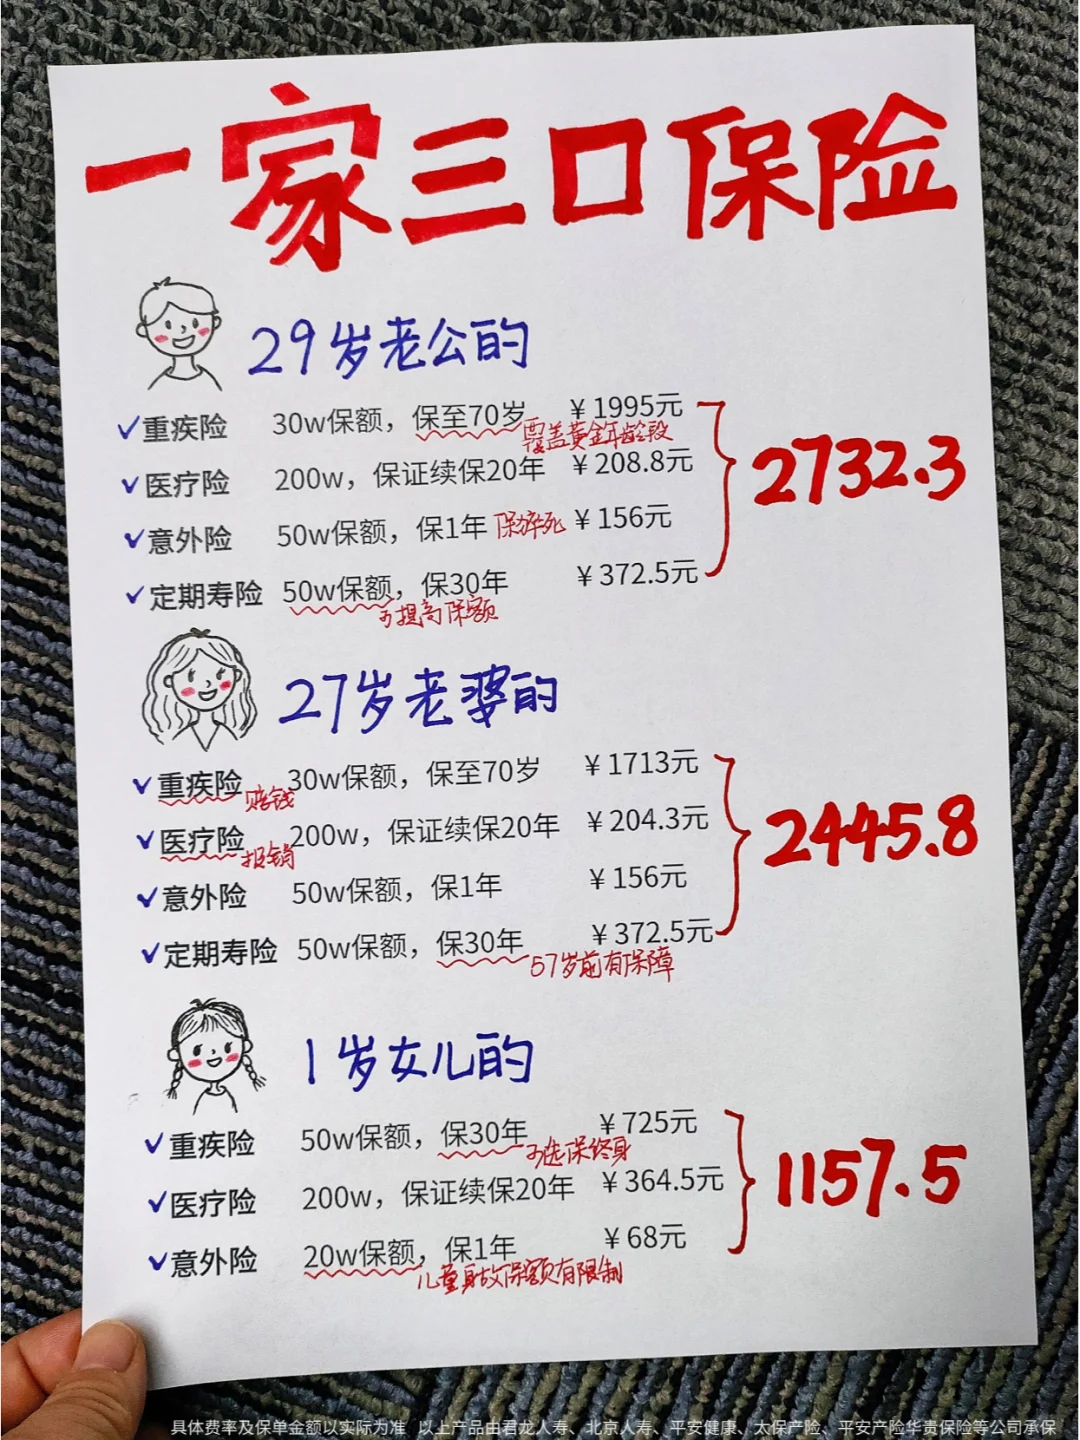 一家三口保险
29岁老公的
✓重疾险 30w保额，保至70岁 ￥1995元
覆盖黄金年龄段
✓医疗险 200w，保证续保20年 ￥208.8元
2732.3
✓意外险 50w保额，保1年 保猝死 ￥156元
✓定期寿险 50w保额，保30年 ￥372.5元
可提高保额
27岁老婆的
✓重疾险 30w保额，保至70岁 ￥1713元
赔钱
✓医疗险 200w，保证续保20年 ￥204.3元
2445.8
报销
✓意外险 50w保额，保1年 ￥156元
✓定期寿险 50w保额，保30年 ￥372.5元
57岁前有保障
1岁女儿的
✓重疾险 50w保额，保30年 ￥725元
可选保终身
✓医疗险 200w，保证续保20年 ￥364.5元
1157.5
✓意外险 20w保额，保1年 ￥68元
儿童身故保额有限制
具体费率及保单金额以实际为准 以上产品由君龙人寿、北京人寿、平安健康、太保产险、平安产险华贵保险等公司承保